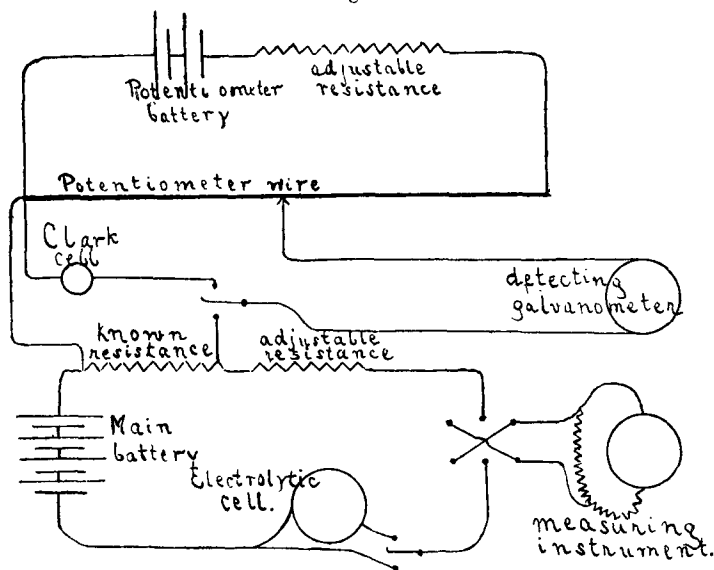 Potentiometer
battery
adjustable
resistance
Potentiometer wire
Clark
cell
detecting
galvanometer
known
resistance
adjustable
resistance
Main
battery
Electrolytic
cell.
measuring
instrument.